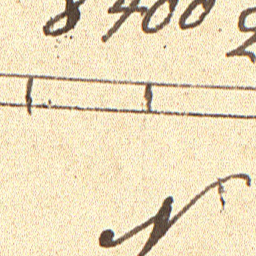 8400
N